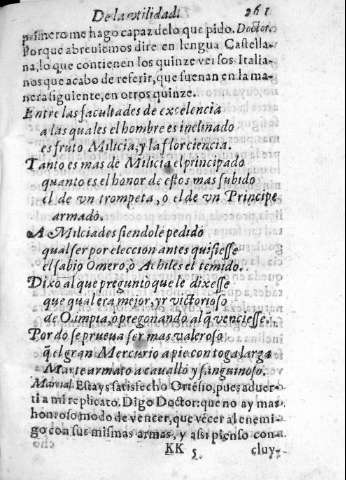 De la vtilidad. 261
primero me hago capaz de lo que pido. Doctor.
Porque abreuiemos dire en lengua Castella-
na, lo que contienen los quinze versos Italia-
nos que acabo de referir, que suenan en la ma-
nera siguiente, en otros quinze.
Entre las facultades de excelencia
a las quales el hombre es inclinado
es fruto Milicia, y la flor ciencia.
Tanto es mas de Milicia el principado
quanto es el honor de estos mas subido
el de vn trompeta, o el de vn Principe
armado.
A Milciades siendole pedido
qual ser por eleccion antes quisiesse
el sabio Omero, o Achiles el temido.
Dixo al que pregunto que le dixesse
que qual era mejor, yr victorioso
de Oampia, o pregonando al q̃ venciesse.
Por do se prueua ser mas valeroso
q̃ el gran Mercurio a pie con toga larga
Marte armato a cauallo y sanguinoso.
Marcial. Estays satisfecho Ortesio, pues aduer-
ti a mi replicato. Digo Doctor: que no ay mas
honroso modo de vencer, que vẽcer al enemi-
go con sus mismas armas, y assi pienso con-
KK 5 cluy-